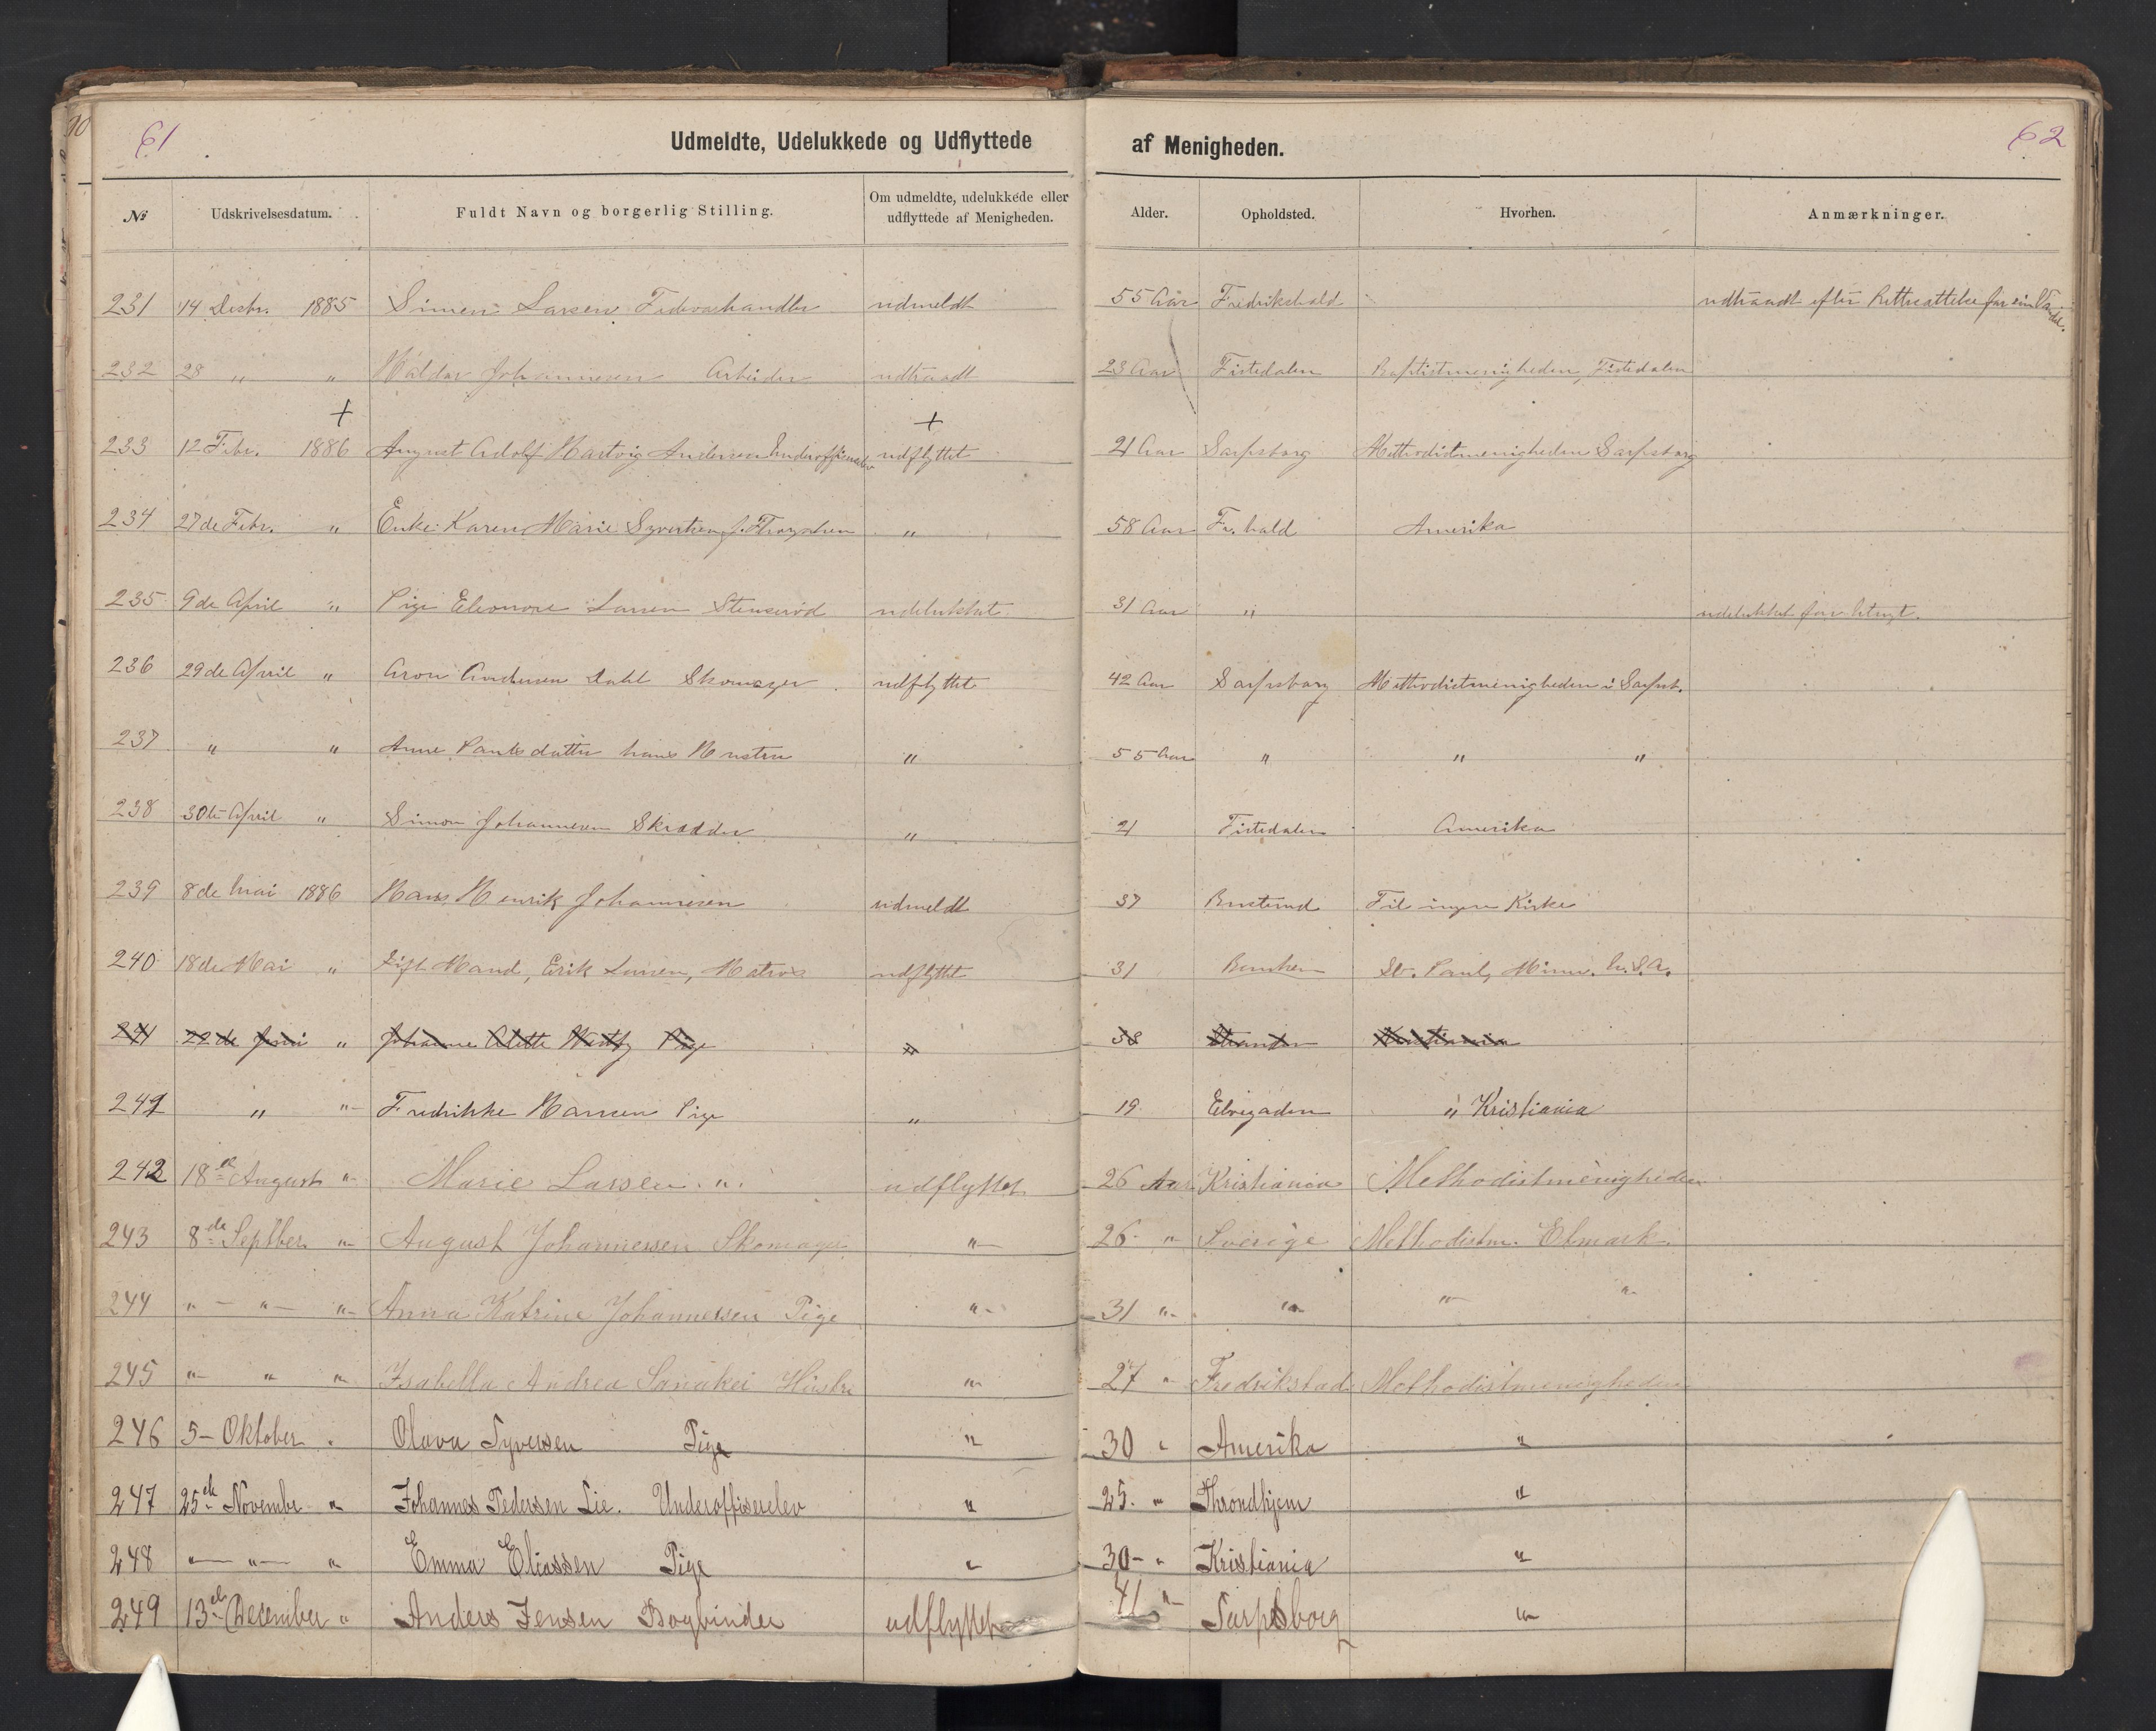 61
Udmeldte, Udelukkede og Udflyttede af Menigheden.
62
№ Udskrivelsesdatum. Fuldt Navn og borgerlig Stilling. Om udmeldte, udelukkede eller udflyttede af Menigheden. Alder. Opholdsted. Hvorhen. Anmærkninger.
231 14 Decbr. 1885 Simen Larsen udmeldt 55 Aar Fredrikshald udtraadt efter
232 28 " " Haldor Johannesen Arbeider udtraadt 23 Aar Tistedalen Baptistmenigheden, Tistedalen
+ +
233 12 Febr. 1886 August Adolf Hartvig Andersen udflyttet 21 Aar Sarpsborg Methodistmenigheden Sarpsborg
234 27de Febr. " Enke Karen Marie Syvertsen " 58 Aar Fr.hald Amerika
235 9de April " Pige Eleonore Larsen Stenerød udelukket. 31 Aar " udelukket for
236 29de April " Aron Andersen Dahl Skomager udflyttet 42 Aar Sarpsborg Methodistmenigheden i Sarpsb.
237 " " Anne Paulsdatter hans Hustru " 55 Aar " " "
238 30te April " Simon Johannesen Skrædder " 21 Tistedalen Amerika
239 8de Mai 1886 Hans Henrik Johannesen udmeldt 37 Til ingen Kirke
240 18de Mai " Gift Mand, Erik Larsen, Matros udflyttet 31 St. Paul, Minn. U.S.A.
241 22de Juni " Johanne Alette Pige " 38 Kristiania
241 " " Fredrikke Hansen Pige " 19 Elvegaden " Kristiania
242 18de August " Marie Larsen " udflyttet 26 Aar Kristiania Methodistmenigheden
243 8de Septber " August Johannessen Skomager " 26 " Sverige Methodistm. Edmark.
244 " " " Anna Katrine Johannessen Pige " 31 " " " "
245 " " " Isabella Andrea Hustru " 27 " Fredrikstad Methodistmenigheden
246 5 Oktober . Olava Syversen Pige " 30 " Amerika "
247 25de Novembr " Johannes Pedersen Lie. Underoffiserelev " 25. " Throndhjem "
248 " " " Emma Eliassen Pige " 30 " Kristiania "
249 13de December " Anders Jensen Bogbinder udflyttet 41 " Sarpsborg "